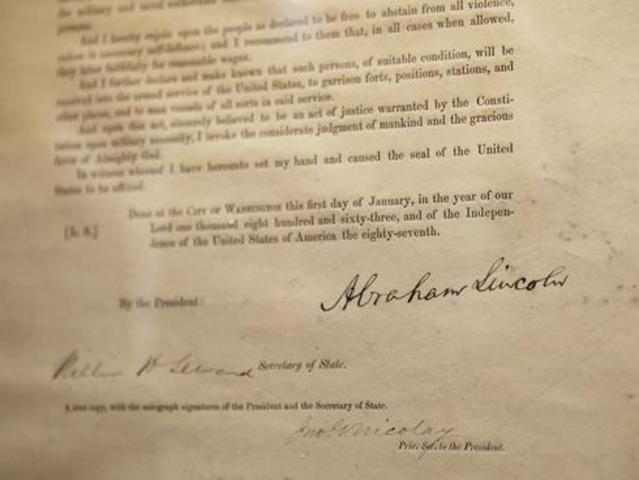 the military and naval authorities
persons.
And I hereby enjoin upon the people so declared to be free to abstain from all violence,
unless in necessary self-defence; and I recommend to them that, in all cases when allowed,
they labor faithfully for reasonable wages.
And I further declare and make known that such persons, of suitable condition, will be
received into the armed service of the United States, to garrison forts, positions, stations, and
other places, and to man vessels of all sorts in said service.
And upon this act, sincerely believed to be an act of justice warranted by the Consti-
tution upon military necessity, I invoke the considerate judgment of mankind and the gracious
favor of Almighty God.
In witness whereof I have hereunto set my hand and caused the seal of the United
States to be affixed.
Done at the CITY OF WASHINGTON this first day of January, in the year of our
[L. S.] Lord one thousand eight hundred and sixty-three, and of the Indepen-
dence of the United States of America the eighty-seventh.
Abraham Lincoln
By the President:
William H Seward Secretary of State.
A true copy, with the autograph signatures of the President and the Secretary of State.
Jno. G. Nicolay
Priv. Sec. to the President.